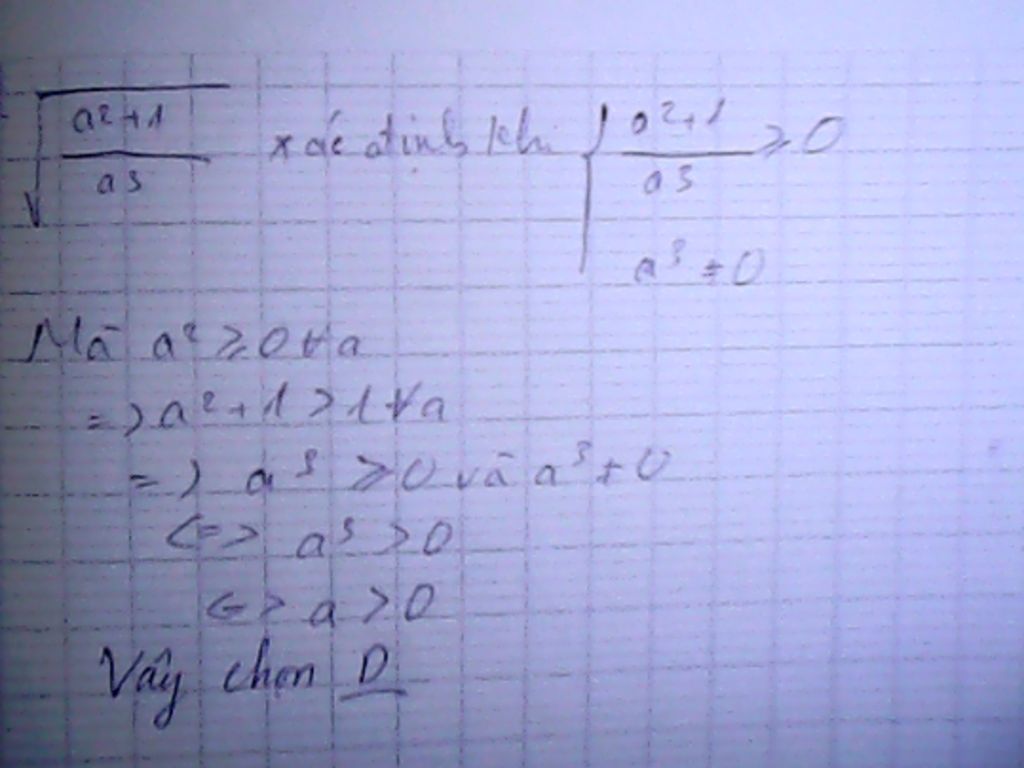 √((a²+1)/a³) xác định khi { (a²+1)/a³ ≥ 0
a³ ≠ 0
Mà a² ≥ 0 ∀a
=> a²+1 > 1 ∀a
=> a³ ≥ 0 và a³ ≠ 0
<=> a³ > 0
<=> a > 0
Vây chọn D